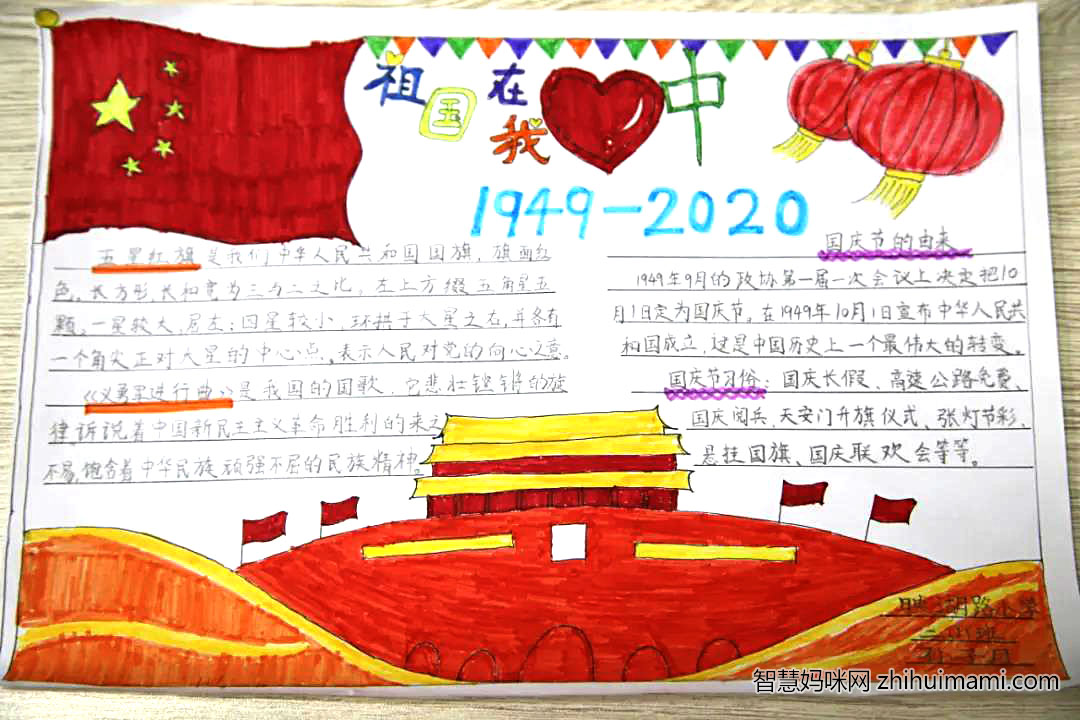 祖国在我中
1949-2020
五星红旗是我们中华人民共和国国旗，旗面红
色，长方形，长和宽为三与二之比，左上方缀五角星五
颗，一星较大，居左；四星较小，环拱于大星之右，并各有
一个角尖正对大星的中心点，表示人民对党的向心之意。
《义勇军进行曲》是我国的国歌，它悲壮铿锵的旋
律诉说着中国新民主主义革命胜利的来之
不易，饱含着中华民族顽强不屈的民族精神。
国庆节的由来
1949年9月的政协第一届一次会议上决定把10
月1日定为国庆节，在1949年10月1日宣布中华人民共
和国成立，这是中国历史上一个最伟大的转变。
国庆节习俗：国庆长假、高速公路免费、
国庆阅兵、天安门升旗仪式、张灯节彩、
悬挂国旗、国庆联欢会等等。
湖路小学
智慧妈咪网 zhihuimami.com